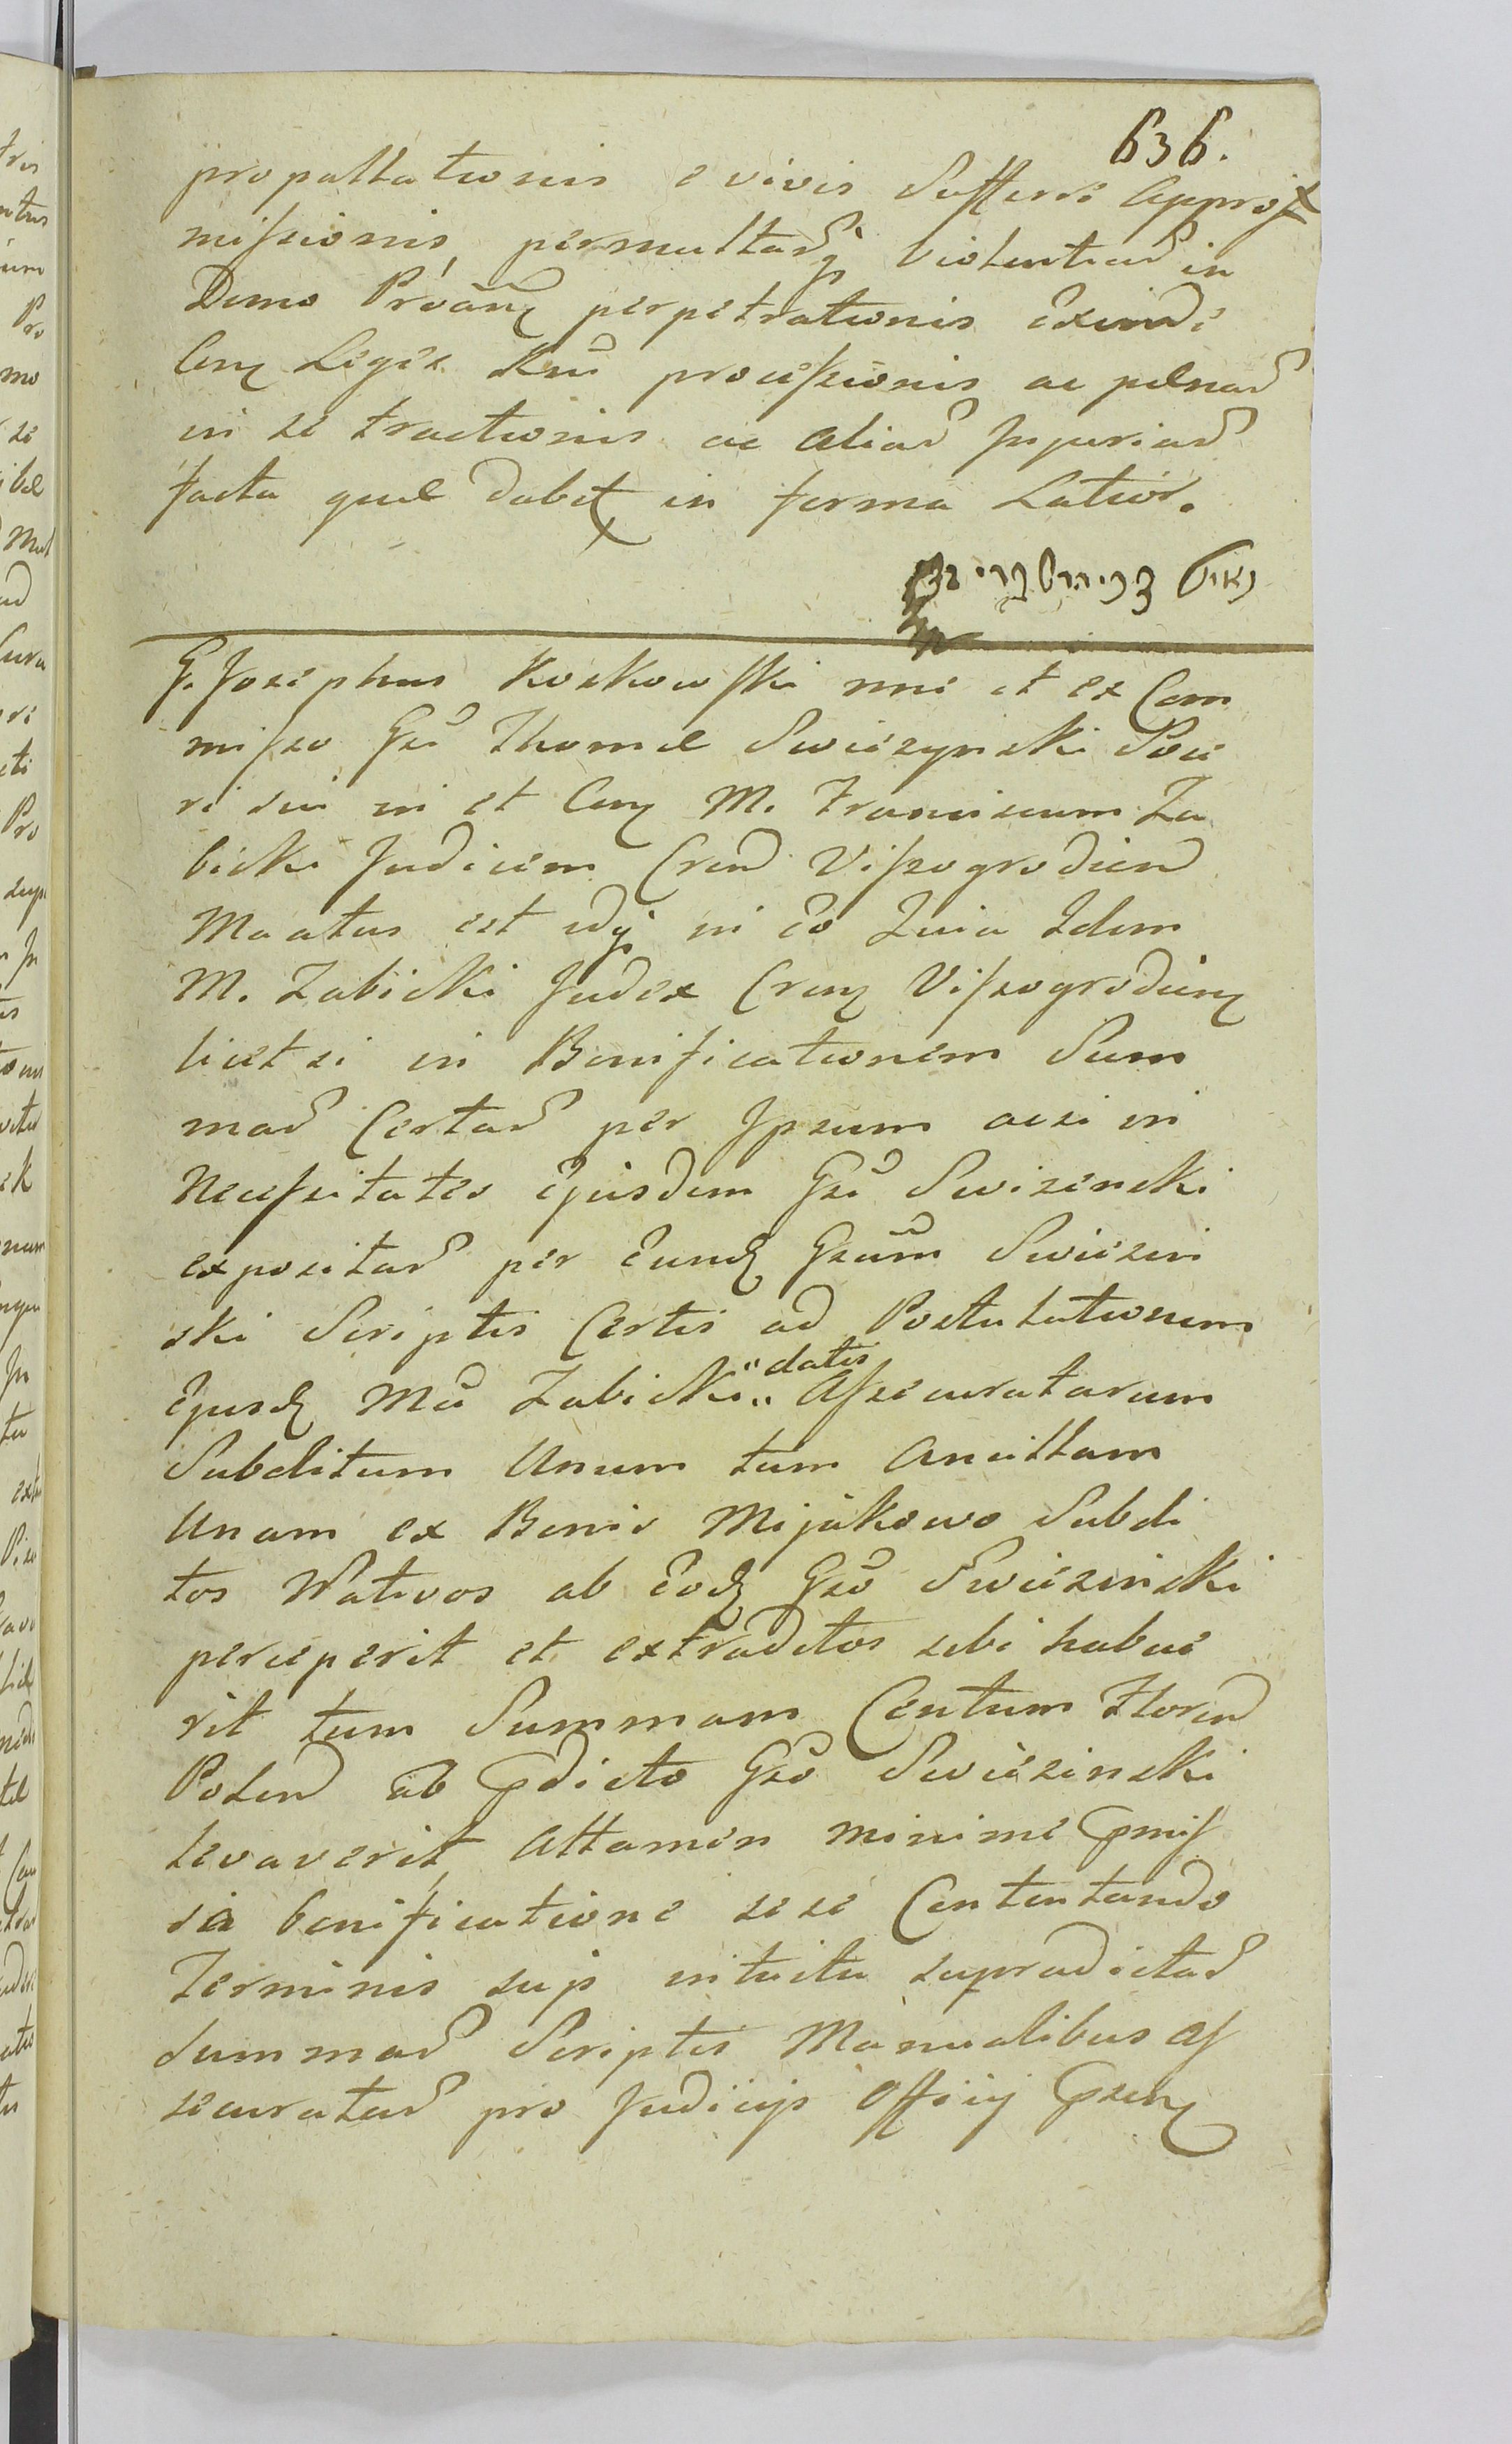 636.
propallationis e vivis Sufferri Approx
missionis, permultarūq̨ Violentiarū in
Domo Proanq̄ perpetrationis Exinde
Conq̄ Leges Rnī processionis ac pœnarū
in se tractionis ac Aliarū Injuriarū
facta quæ dabitᵣ in forma Latiori.
G. Josephus Koskowski nnē et ex Com
misso Gsī Thomæ Swieszynski Soce
ri sui in et Conq̄ M. Franciscum Za
bicki Judicem Crēn Vissogrodien
Maatus est idq̨ in eo Quia Idem
M. Zabicki Judex Crenq̄ Vissogrodienq̄
licet si in Bonificationem Sum
marū Certarū per Ipsum acsi in
Necessitates Ejusdem Gsī Swiesenski
expositarū per Eundq̄ Gsūm Swiesin
ski Scriptis Certis ad Postulationem
Ejusdq̄ Mcī Zabicki "datis" Assecuratarum
Subditum Unum tum Ancillam
Unam ex Bonis Mijakowo Subdi
tos Nativos ab Eodq̄ Gsō Swiesinski
perceperit et extraditos sibi habue
rit tum Summam Centum Floren
Polon ab Pdicto Gsō Swiesinski
levaverit, Attamen minime Pmis
sa bonificatione sese Contentando
Terminis sup intuitu supradictarū
Summarū Scriptis Manualibus As
securatarū pro Judicijs Officij Psenq̄